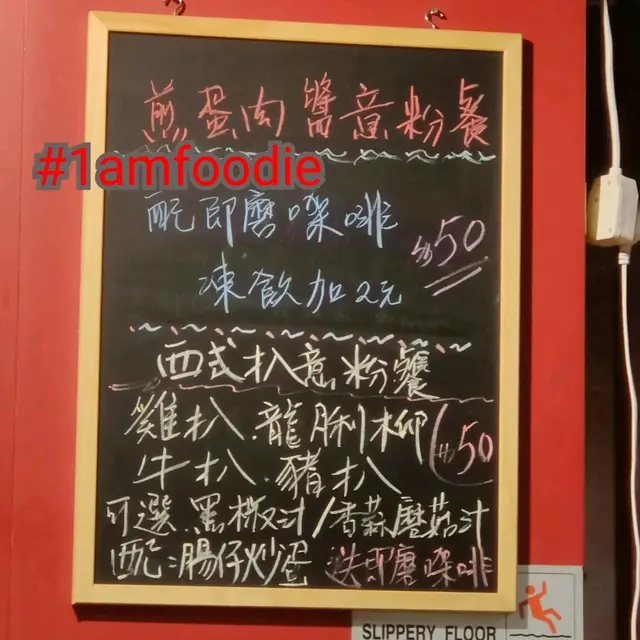 煎蛋肉醬意粉餐
#1amfoodie
配即磨㗎啡
$50
凍飲加2元
西式扒意粉餐
雞扒.龍脷柳
牛扒.豬扒
$50
可選黑椒汁/香蒜磨菇汁
配:腸仔炒蛋 送即磨㗎啡
SLIPPERY FLOOR